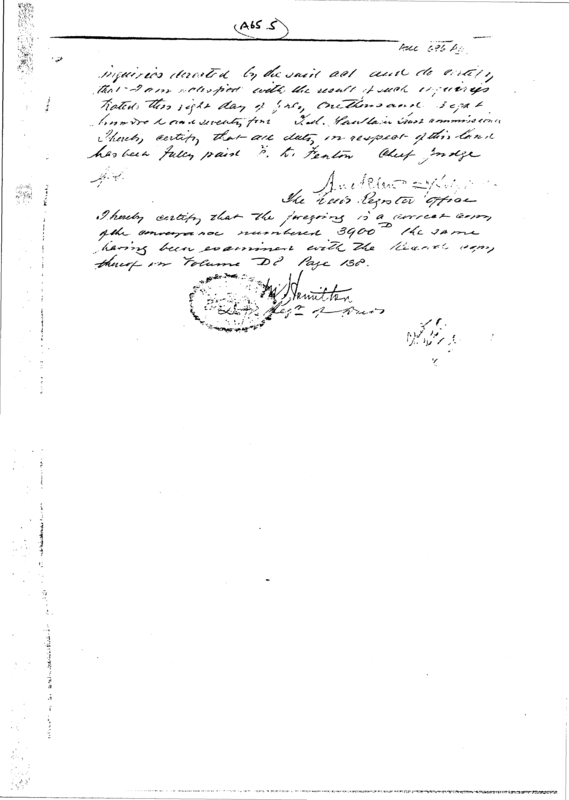 A65 5
Acc 696
inquiries directed by the said act and do certify
that I am satisfied with the result of such inquiries
Dated this eight day of July One thousand eight
hundred and seventy five Trust Commissioner
I hereby certify that all duty in respect of this land
has been fully paid F. D. Fenton Chief Judge
The Deeds Register Office
I hereby certify that the foregoing is a correct copy
of the conveyance numbered 3900D the same
having been examined with the Record copy
thereof in Volume D8 Page 138.
Hamilton
Regr of Deeds